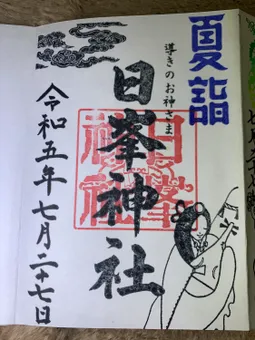 夏詣
導きのお神さま
日峯神社
日峯神社
令和五年七月二十七日